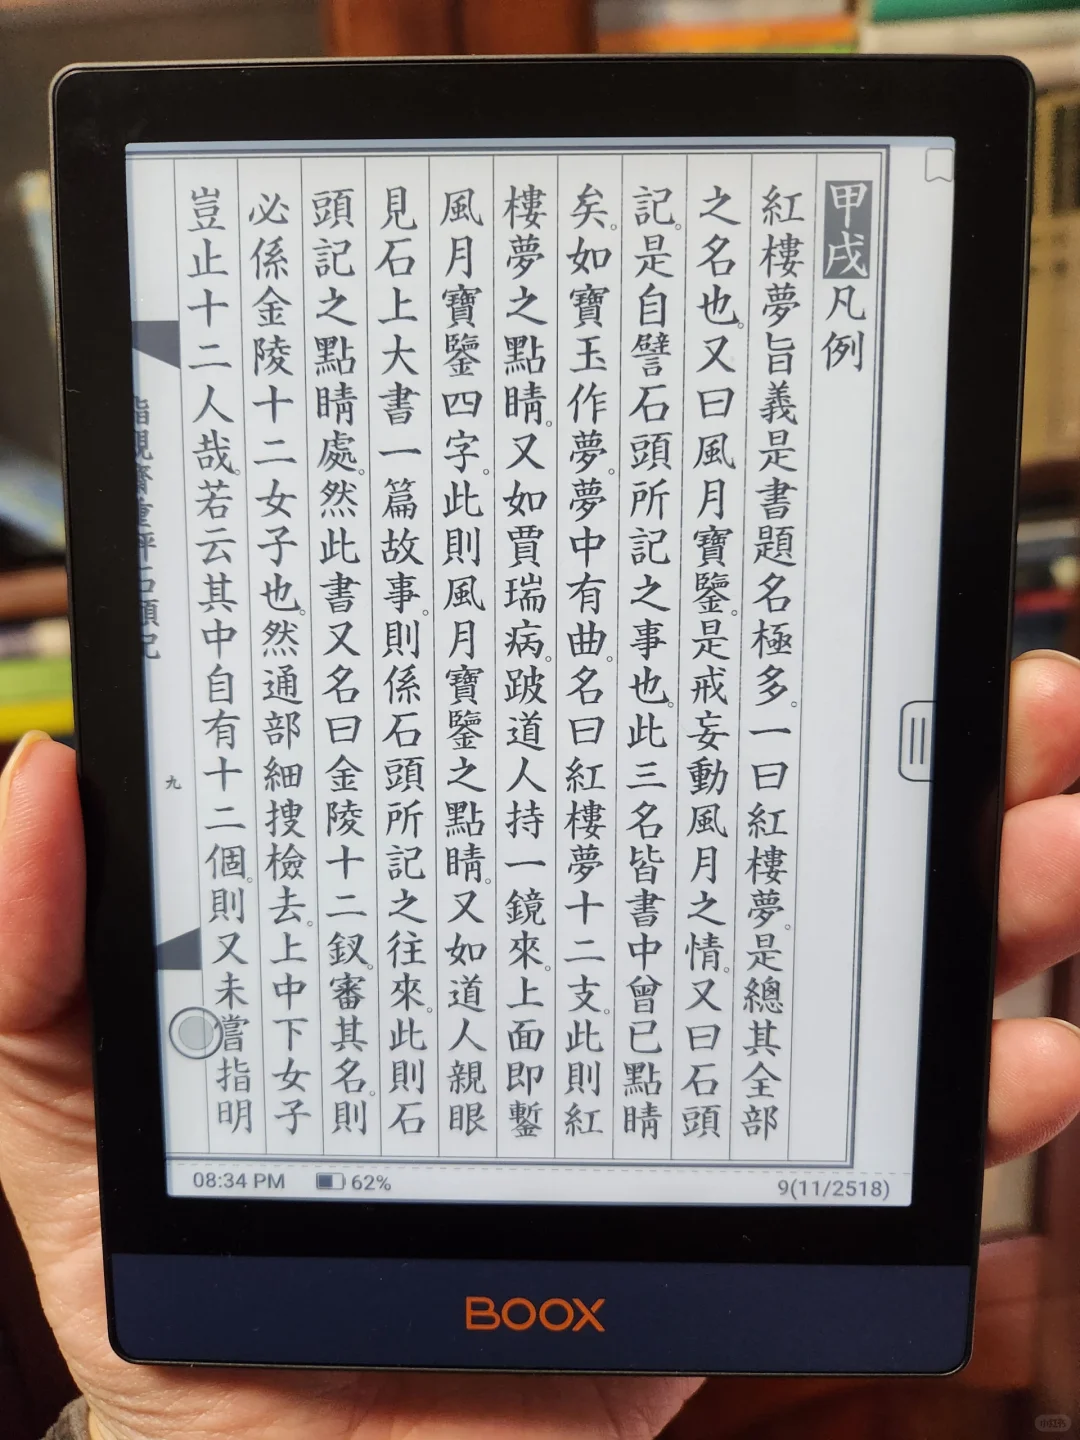 甲戌凡例
紅樓夢旨義是書題名極多。一曰紅樓夢。是總其全部
之名也。又曰風月寶鑒。是戒妄動風月之情。又曰石頭
記。是自譬石頭所記之事也。此三名皆書中曾已點睛
矣。如寶玉作夢。夢中有曲。名曰紅樓夢十二支。此則紅
樓夢之點睛。又如賈瑞病。跛道人持一鏡來。上面即鏨
風月寶鑒四字。此則風月寶鑒之點睛。又如道人親眼
見石上大書一篇故事。則係石頭所記之往來。此則石
頭記之點睛處。然此書又名曰金陵十二釵。審其名。則
必係金陵十二女子也。然通部細搜檢去。上中下女子
豈止十二人哉。若云其中自有十二個。則又未嘗指明
脂硯齋重評石頭記
九
08:34 PM 62%
9(11/2518)
BOOX
小红书